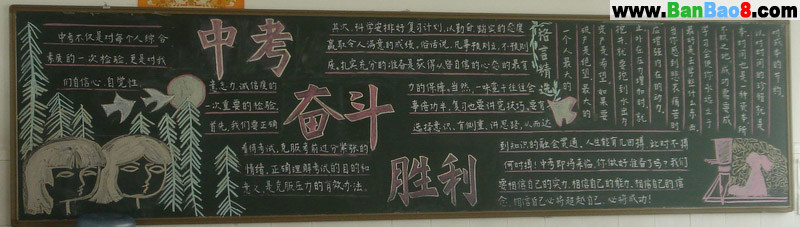 www.BanBao8.com
中考
奋斗
胜利
中考不仅是对每个人综合
素质的一次检验,更是对我
们自信心、自觉性
意志力、诚信度的
一次重要的检验。
首先,我们要正确
看待考试,克服考前过分紧张的
情绪。正确理解考试的目的和
意义,是克服压力的有效办法。
其次,科学安排好复习计划,以勤奋、踏实的态度
赢取令人满意的成绩。俗话说,凡事预则立,不预则
废。扎实充分的准备是获得从容自信的心态的最有
力的保障。当然,一味蛮干往往会
事倍功半,复习也要讲究技巧,要有
选择意识,有侧重,讲思路,从而达
到知识的融会贯通。人生能有几回搏,此时不搏
何时搏!中考即将来临,你做好准备了吗?我们
要相信自己的实力,相信自己的能力,相信自己的信
念,相信自己必将超越自己、必将成功!
格言精选
一个人最大的
破产是绝望,最大的
资产是希望。如果要
挖井,就要挖到水出为